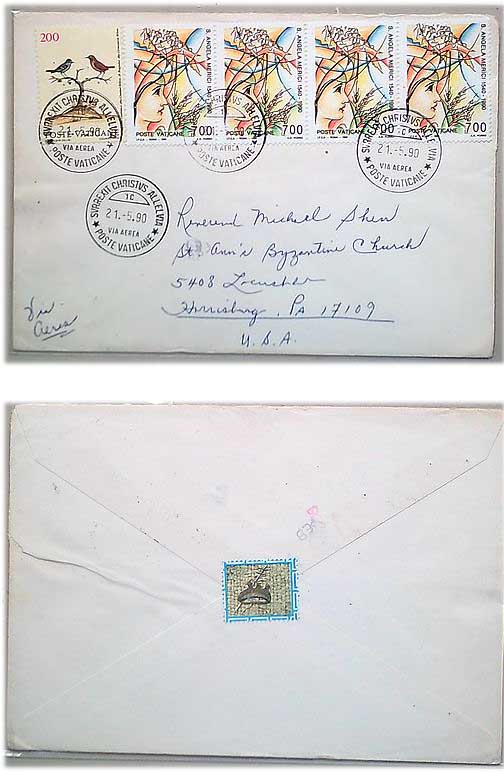 200
POSTE VATICANE
S. ANGELA MERICI 1540-1990
POSTE VATICANE 700
S. ANGELA MERICI 1540-1990
POSTE VATICANE 700
S. ANGELA MERICI 1540-1990
POSTE VATICANE 700
S. ANGELA MERICI 1540-1990
POSTE VATICANE 700
SVRREXIT CHRISTVS ALLELVIA
21.-5.90
VIA AEREA
POSTE VATICANE
SVRREXIT CHRISTVS ALLELVIA
POSTE VATICANE
SVRREXIT CHRISTVS ALLELVIA
1C
21.-5.90
VIA AEREA
POSTE VATICANE
SVRREXIT CHRISTVS ALLELVIA
1C
21.-5.90
VIA AEREA
POSTE VATICANE
Reverend Michael Shen
St. Ann's Byzantine Church
5408 Locust
Harrisburg, PA 17109
U.S.A.
Via
Aerea